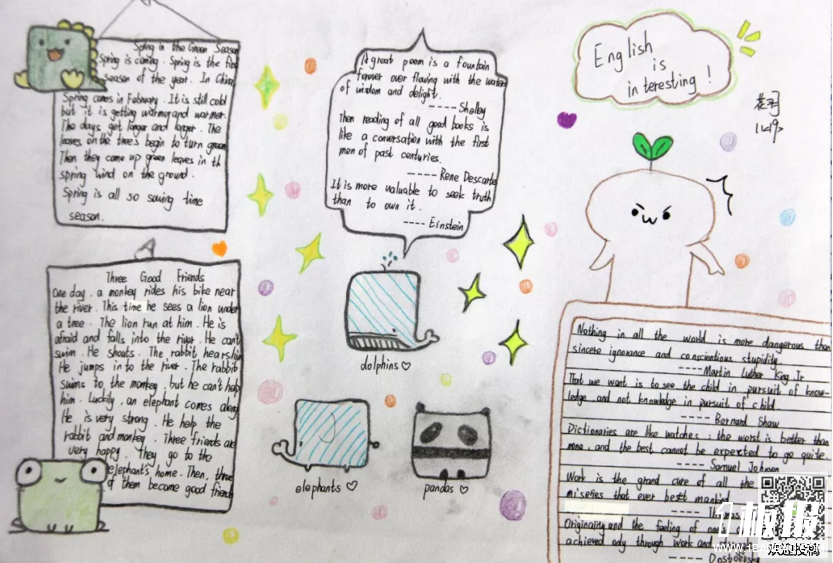 Spring in the Green Season
Spring is coming. Spring is the first
season of the year. In China,
Spring comes in February. It is still cold
but it is getting warmer and warmer.
The days get longer and longer. The
leaves on the trees begin to turn green
Then they come up green leaves in th
spring wind on the ground.
Spring is all so sowing time
season.
Three Good Friends
One day, a monkey rides his bike near
the river. This time he sees a lion under
a tree. The lion run at him. He is
afraid and falls into the river. He can't
swim. He shouts. The rabbit hears him
He jumps into the river. The rabbit
swims to the monkey, but he can't help
him. Luckily, an elephant comes along
He is very strong. He help the
rabbit and monkey. Three friends are
very happy. they go to the
elephant's home. Then, three
of them become good friends
A great poem is a fountain
forever over flowing with the water
of wisdom and delight.
---- Shelley
Then reading of all good books is
like a conversation with the first
men of past centuries.
---- Rene Descarte
It is more valuable to seek truth
than to own it.
---- Einstein
dolphins ♡
elephants ♡
pandas ♡
English
is
interesting !
Nothing in all the world is more dangerous than
sincere ignorance and conscientious stupidity.
---- Martin Luther King Jr
That we want is to see the child in pursuit of know-
ledge, and not knowledge in pursuit of child.
---- Bernard Shaw
Dictionaries are like watches: the worst is better than
none, and the best cannot be expected to go quite
---- Samuel Johnson
Work is the grand cure of all the
miseries that ever beset mankind
---- Th
Originality and the feeling of one
achieved only through work and
---- Dostoevsky
板报
欢迎投稿